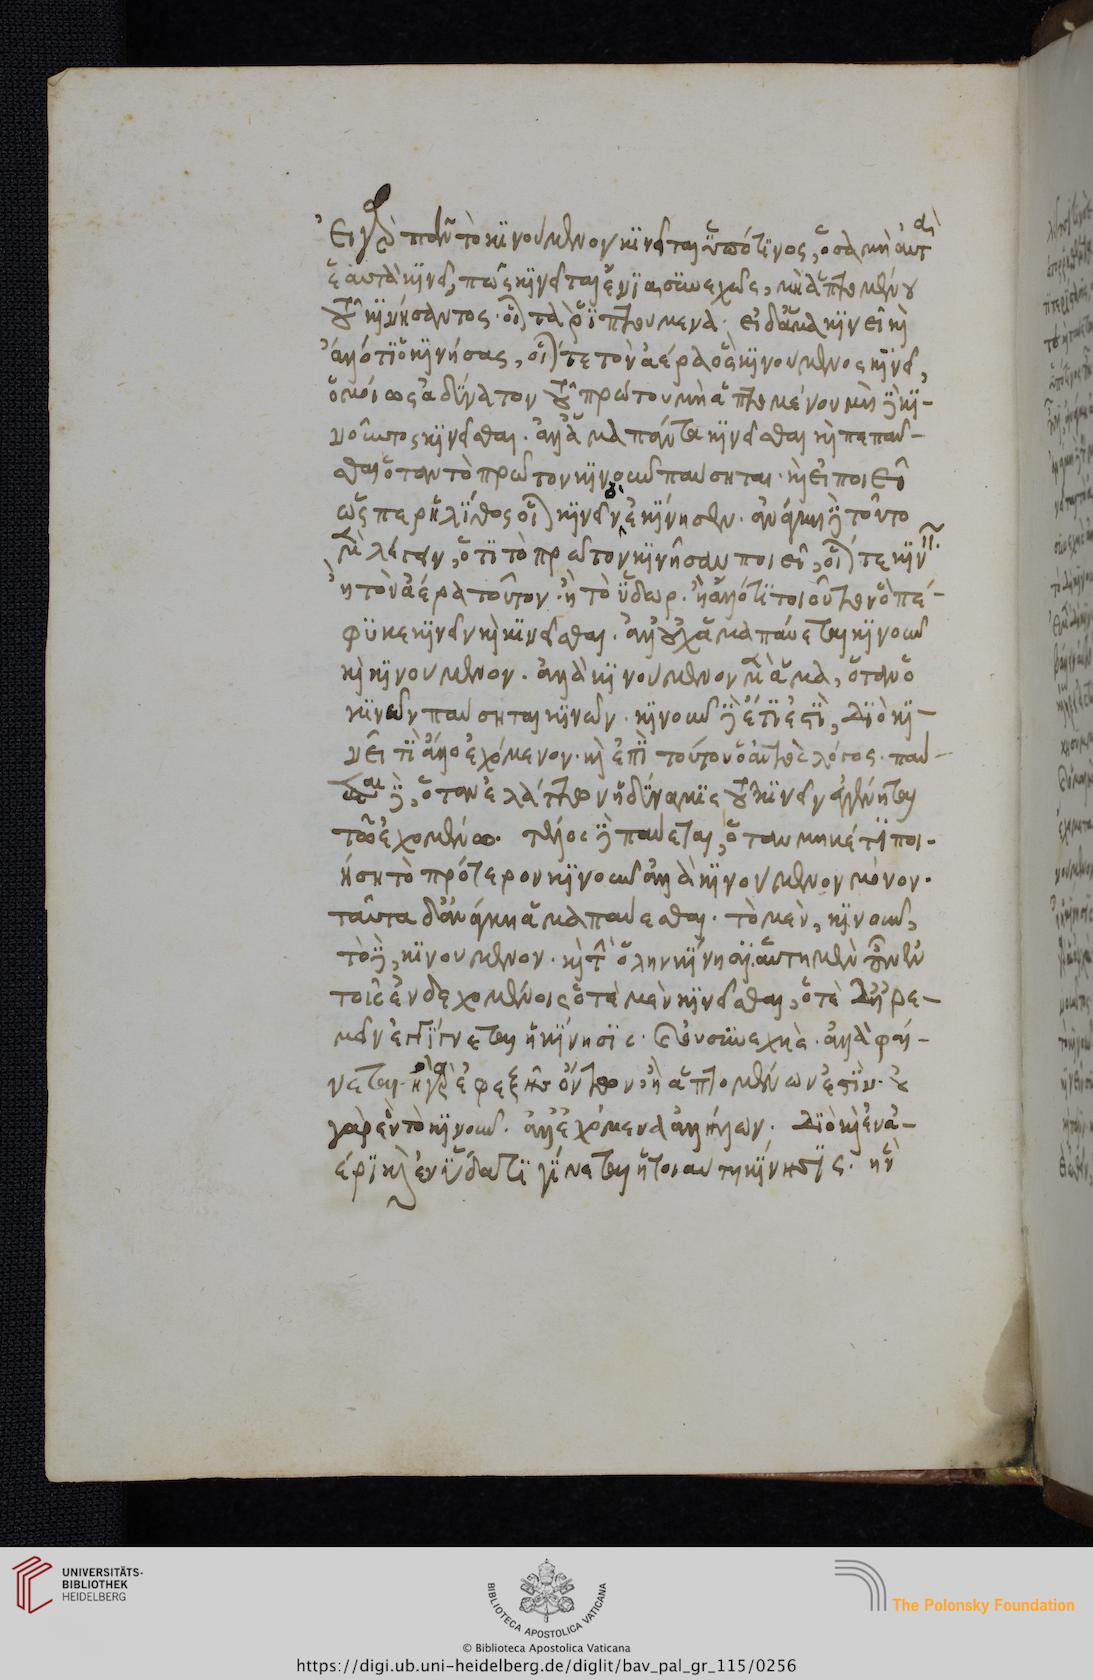 Εἰ γὰρ πᾶν τὸ κινούμενον κινεῖται ὑπό τινος, ὅσα μὴ αὐτὰ
ἑαυτὰ κινεῖ, πῶς κινεῖται ἔνια συνεχῶς, μὴ ἁπτομένου
τοῦ κινήσαντος· οἷον τὰ ῥιπτούμενα· εἰ δ' ἅμα κινεῖ καὶ
ἄλλό τι ὁ κινήσας, οἷόν τε τὸν ἀέρα ὃς κινούμενος κινεῖ,
ὁμοίως ἀδύνατον τοῦ πρώτου μὴ ἁπτομένου μὴ δὲ κι-
νοῦντος κινεῖσθαι. ἀλλ' ἅμα πάντα κινεῖσθαι καὶ πεπαῦ-
σθαι ὅταν τὸ πρῶτον κινοῦν παύσηται· καὶ εἰ ποιεῖ
ὥσπερ ἡ λίθος οἷον κινεῖν ὃ ἐκίνησεν· ἀνάγκη δὲ τοῦτο
μὲν λέγειν, ὅτι τὸ πρῶτον κινῆσαν ποιεῖ, οἷόν τε κινεῖν.
ἢ τὸν ἀέρα τοιοῦτον· ἢ τὸ ὕδωρ· ἢ ἄλλό τι τοιοῦτον ὃ πέ-
φυκε κινεῖν καὶ κινεῖσθαι· ἀλλ' οὐχ ἅμα παύεται κινοῦν
καὶ κινούμενον. ἀλλὰ κινούμενον μὲν ἅμα, ὅταν ὁ
κινῶν παύσηται κινῶν. κινοῦν δὲ ἔτι ἐστὶ, διὸ κι-
νεῖ τι ἄλλο ἐχόμενον· καὶ ἐπὶ τούτου ὁ αὐτὸς λόγος· παύ-
εται δὲ, ὅταν ἐλάττων ἡ δύναμις τοῦ κινεῖν ἐγγένηται
τῶ ἐχομένω. τέλος δὲ παύεται, ὅταν μηκέτι ποι-
ήση τὸ πρότερον κινοῦν ἀλλὰ κινούμενον μόνον·
ταῦτα δ' ἀνάγκη ἅμα παύεσθαι· τὸ μὲν, κινοῦν,
τὸ δὲ, κινούμενον· καὶ τὴν ὅλην κίνησιν. αὕτη μὲν οὖν ἐν
τοῖς ἐνδεχομένοις ὁτὲ μὲν κινεῖσθαι, ὁτὲ δ' ἠρε-
μεῖν ἐγγίνεται ἡ κίνησις· καὶ οὐ συνεχὴς· ἀλλὰ φαί-
νεται· ἢ γὰρ ἐφεξῆς ὄντων· ἢ ἁπτομένων ἐστίν· οὐ
γὰρ ἓν τὸ κινοῦν· ἀλλ' ἐχόμενα ἀλλήλων. διὸ καὶ ἐν ἀ-
έρι καὶ ἐν ὕδατι γίνεται ἡ τοιαύτη κίνησις· ἣν
UNIVERSITÄTS-
BIBLIOTHEK
HEIDELBERG
BIBLIOTECA APOSTOLICA VATICANA
The Polonsky Foundation
© Biblioteca Apostolica Vaticana
https://digi.ub.uni-heidelberg.de/diglit/bav_pal_gr_115/0256